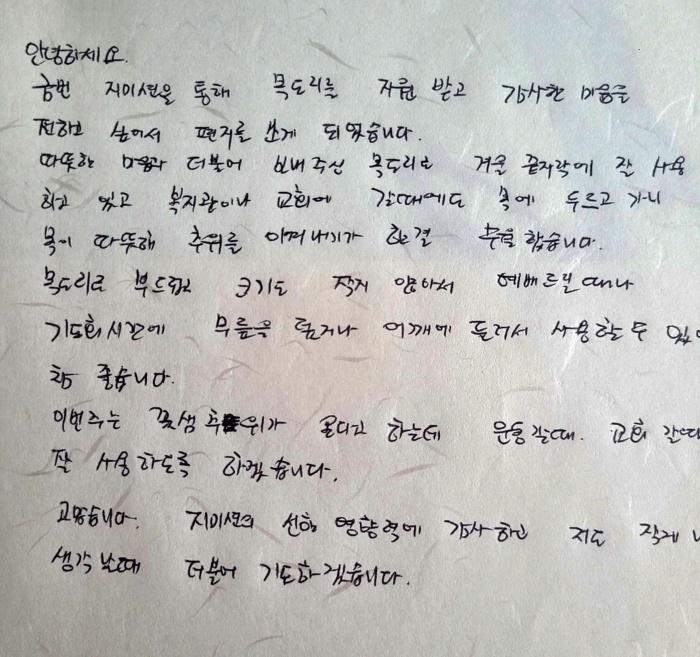 안녕하세요.
금번 지미션을 통해 목도리를 지원 받고 감사한 마음을
전하고 싶어서 편지를 쓰게 되었습니다.
따뜻한 마음과 더불어 보내주신 목도리로 겨울 끝자락에 잘 사용
하고 있고 복지관이나 교회에 갈때에도 목에 두르고 가니
목이 따뜻해 추위를 이겨내기가 한결 수월했습니다.
목도리로 부드럽고 크기도 작지 않아서 예배드릴때나
기도회시간에 무릎을 덮거나 어깨에 둘러서 사용할 수 있
참 좋습니다.
이번주는 꽃샘추위가 온다고 하는데 운동갈때. 교회 갈때
잘 사용하도록 하겠습니다.
고맙습니다. 지미션의 선한 영향력에 감사하고 저도 작게
생각날때 더불어 기도하겠습니다.